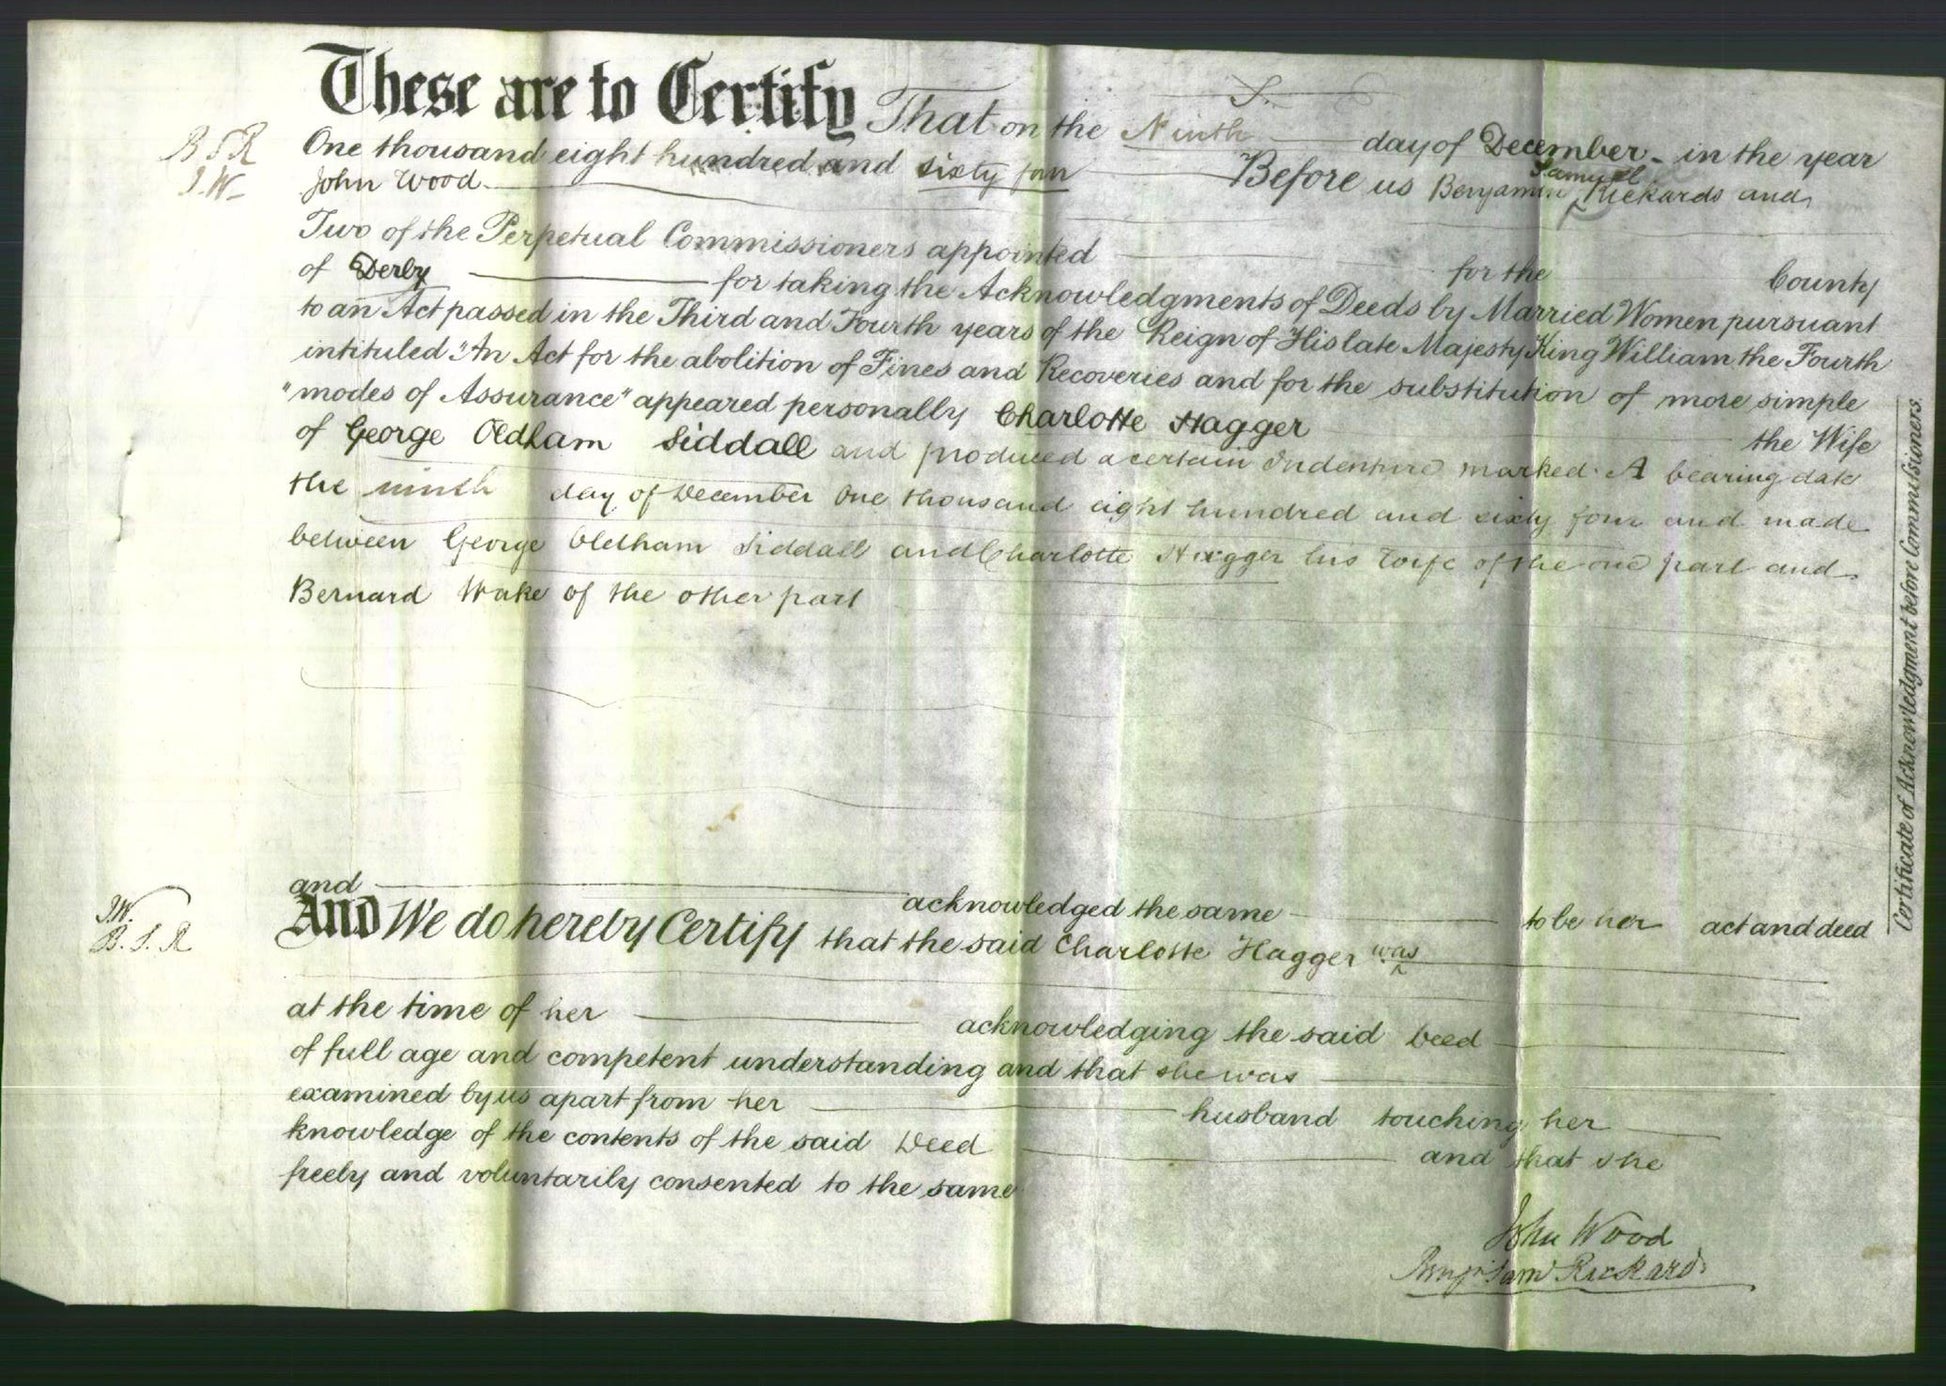 S.
These are to Certify That on the Ninth day of December in the year
B S R
One thousand eight hundred and sixty four Before us Benjamin Samuel Rickards and
J. W.
John Wood
Two of the Perpetual Commissioners appointed for the County
of Derby for taking the Acknowledgments of Deeds by Married Women pursuant
to an Act passed in the Third and Fourth years of the Reign of His late Majesty King William the Fourth
intituled "An Act for the abolition of Fines and Recoveries and for the substitution of more simple
"modes of Assurance" appeared personally Charlotte Hagger the Wife
of George Oldham Siddall and produced a certain Indenture marked A bearing date
the ninth day of December One thousand eight hundred and sixty four and made
between George Oldham Siddall and Charlotte Hagger his Wife of the one part and
Bernard Wake of the other part
and acknowledged the same to be her act and deed
J.W.
B. S. R
And We do hereby Certify that the said Charlotte Hagger was
at the time of her acknowledging the said Deed
of full age and competent understanding and that she was
examined by us apart from her husband touching her
knowledge of the contents of the said Deed and that she
freely and voluntarily consented to the same
John Wood
Benjn Saml Rickards
Certificate of Acknowledgment before Commissioners.